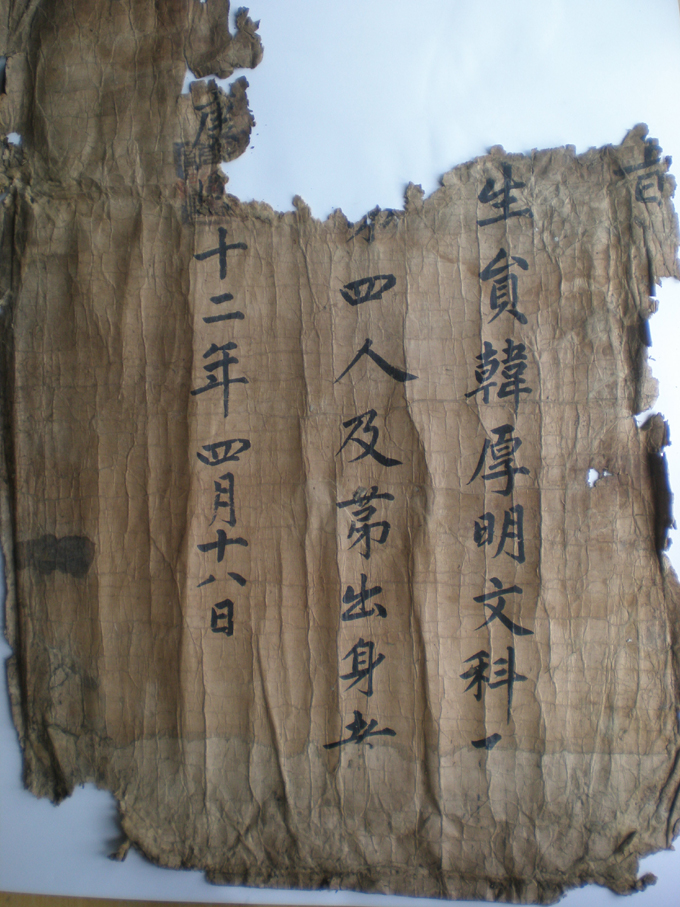 旨
生貟韓厚明文科
四人及苐出身者
康
十二年四月十八日